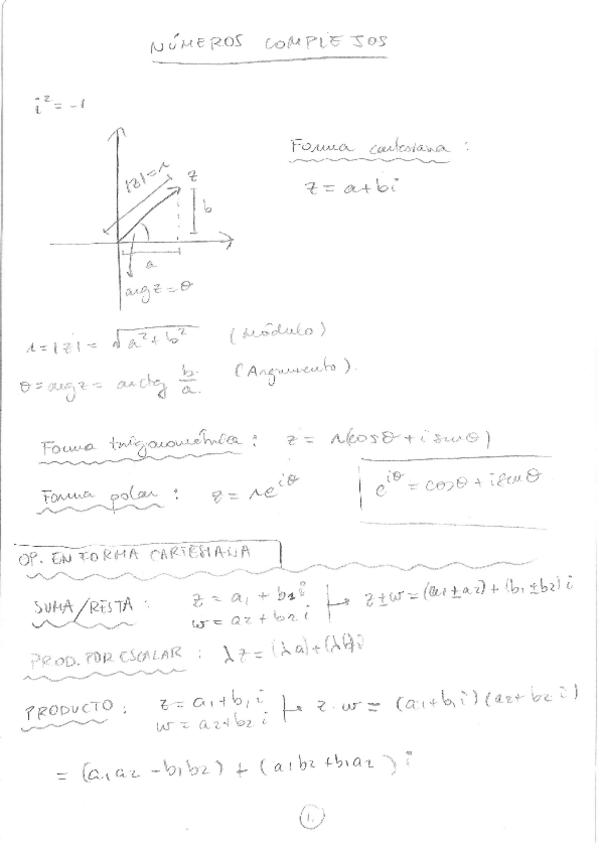 NÚMEROS COMPLEJOS
i² = -1
Forma cartesiana :
z = a + bi
|z| = r
z
b
a
arg z = θ
r = |z| = √(a² + b²) (Módulo)
θ = arg z = arctg b/a (Argumento).
Forma trigonométrica : z = r(cosθ + i senθ)
Forma polar : z = re^{iθ}
e^{iθ} = cosθ + i senθ
OP. EN FORMA CARTESIANA
SUMA/RESTA : z = a₁ + b₁i
w = a₂ + b₂i → z ± w = (a₁ ± a₂) + (b₁ ± b₂) i
PROD. POR ESCALAR : λz = (λa) + (λb)i
PRODUCTO : z = a₁ + b₁i
w = a₂ + b₂i → z · w = (a₁ + b₁i)(a₂ + b₂i)
= (a₁a₂ - b₁b₂) + (a₁b₂ + b₁a₂) i
1.